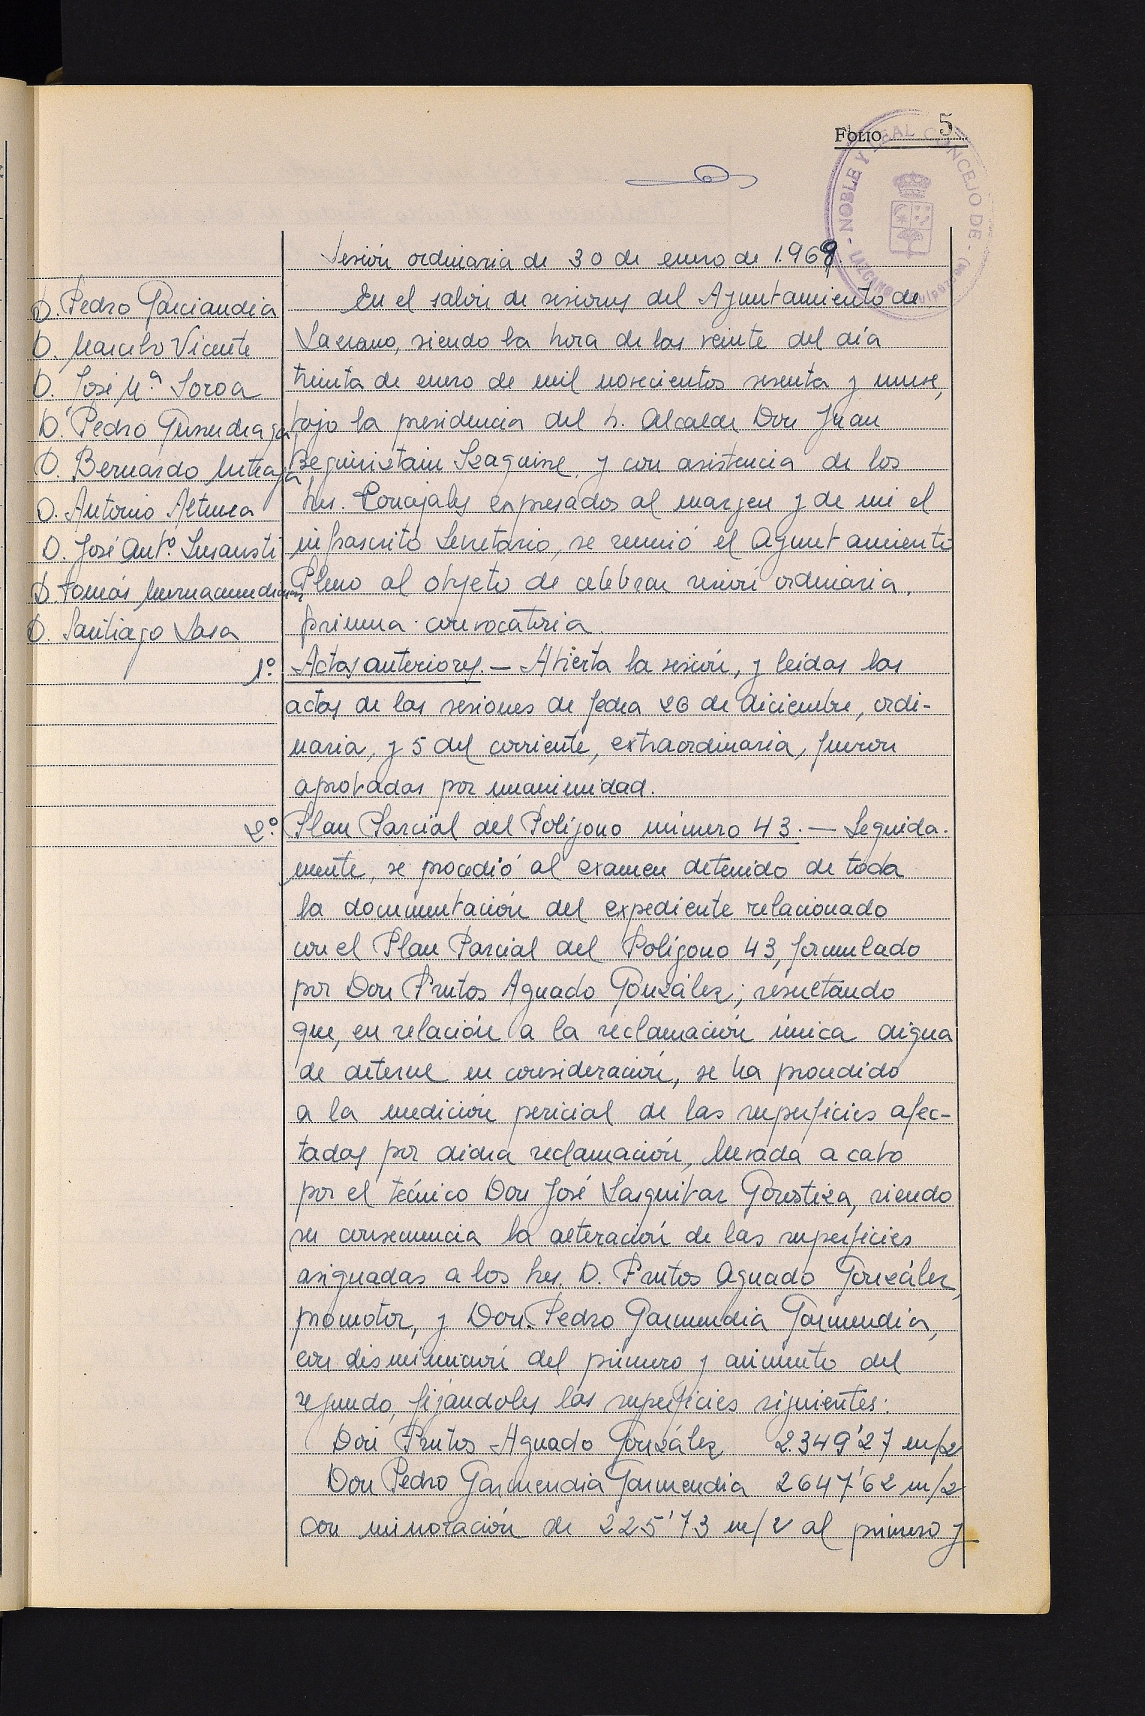 FOLIO 5
NOBLE Y LEAL CONCEJO DE LAZCANO
Sesión ordinaria de 30 de enero de 1.969.
D. Pedro Garciandia
D. Marcelo Vicente
D. José Mª Soroa
D. Pedro Gurendiaga
D. Bernardo Intxa
D. Antonio Altuna
D. José Antº Insausti
D. Tomás
D. Santiago Lasa
En el salón de sesiones del Ayuntamiento de
Lazcano, siendo la hora de las veinte del día
treinta de enero de mil novecientos sesenta y nueve,
bajo la presidencia del S. Alcalde Don Juan
Beguiristain Izaguirre y con asistencia de los
Sres. Concejales expresados al margen y de mi el
infrascrito Secretario, se reunió el Ayuntamiento
Pleno al objeto de celebrar sesión ordinaria,
primera convocatoria.
1º Actas anteriores.- Abierta la sesión, y leídas las
actas de las sesiones de fecha 26 de diciembre, ordi-
naria, y 5 del corriente, extraordinaria, fueron
aprobadas por unanimidad.
2º Plan Parcial del Polígono número 43.- Seguida-
mente, se procedió al examen detenido de toda
la documentación del expediente relacionado
con el Plan Parcial del Polígono 43, formulado
por Don Frutos Aguado González; resultando
que, en relación a la reclamación única digna
de deterse en consideración, se ha procedido
a la medición pericial de las superficies afec-
tadas por dicha reclamación, llevada a cabo
por el técnico Don José Lasquibar Gorostiza, siendo
su consecuencia la alteración de las superficies
asignadas a los Sres. D. Frutos Aguado González,
promotor, y Don Pedro Garmendia Garmendia,
con disminución del primero y aumento del
segundo, fijándoles las superficies siguientes:
Don Frutos Aguado González 2.349'27 m/2
Don Pedro Garmendia Garmendia 2647'62 m/2
con minoración de 225'73 m/2 al primero y